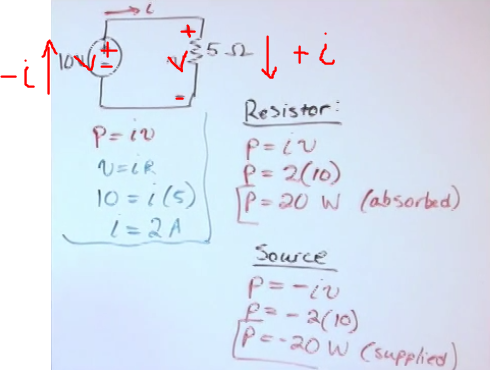 i
-i
10V
+
-
+
V
-
5 Ω
+i
P=iv
v=iR
10=i(5)
i=2A
Resistor:
P=iv
P=2(10)
P=20 W (absorbed)
Source
P=-iv
P=-2(10)
P=-20 W (supplied)